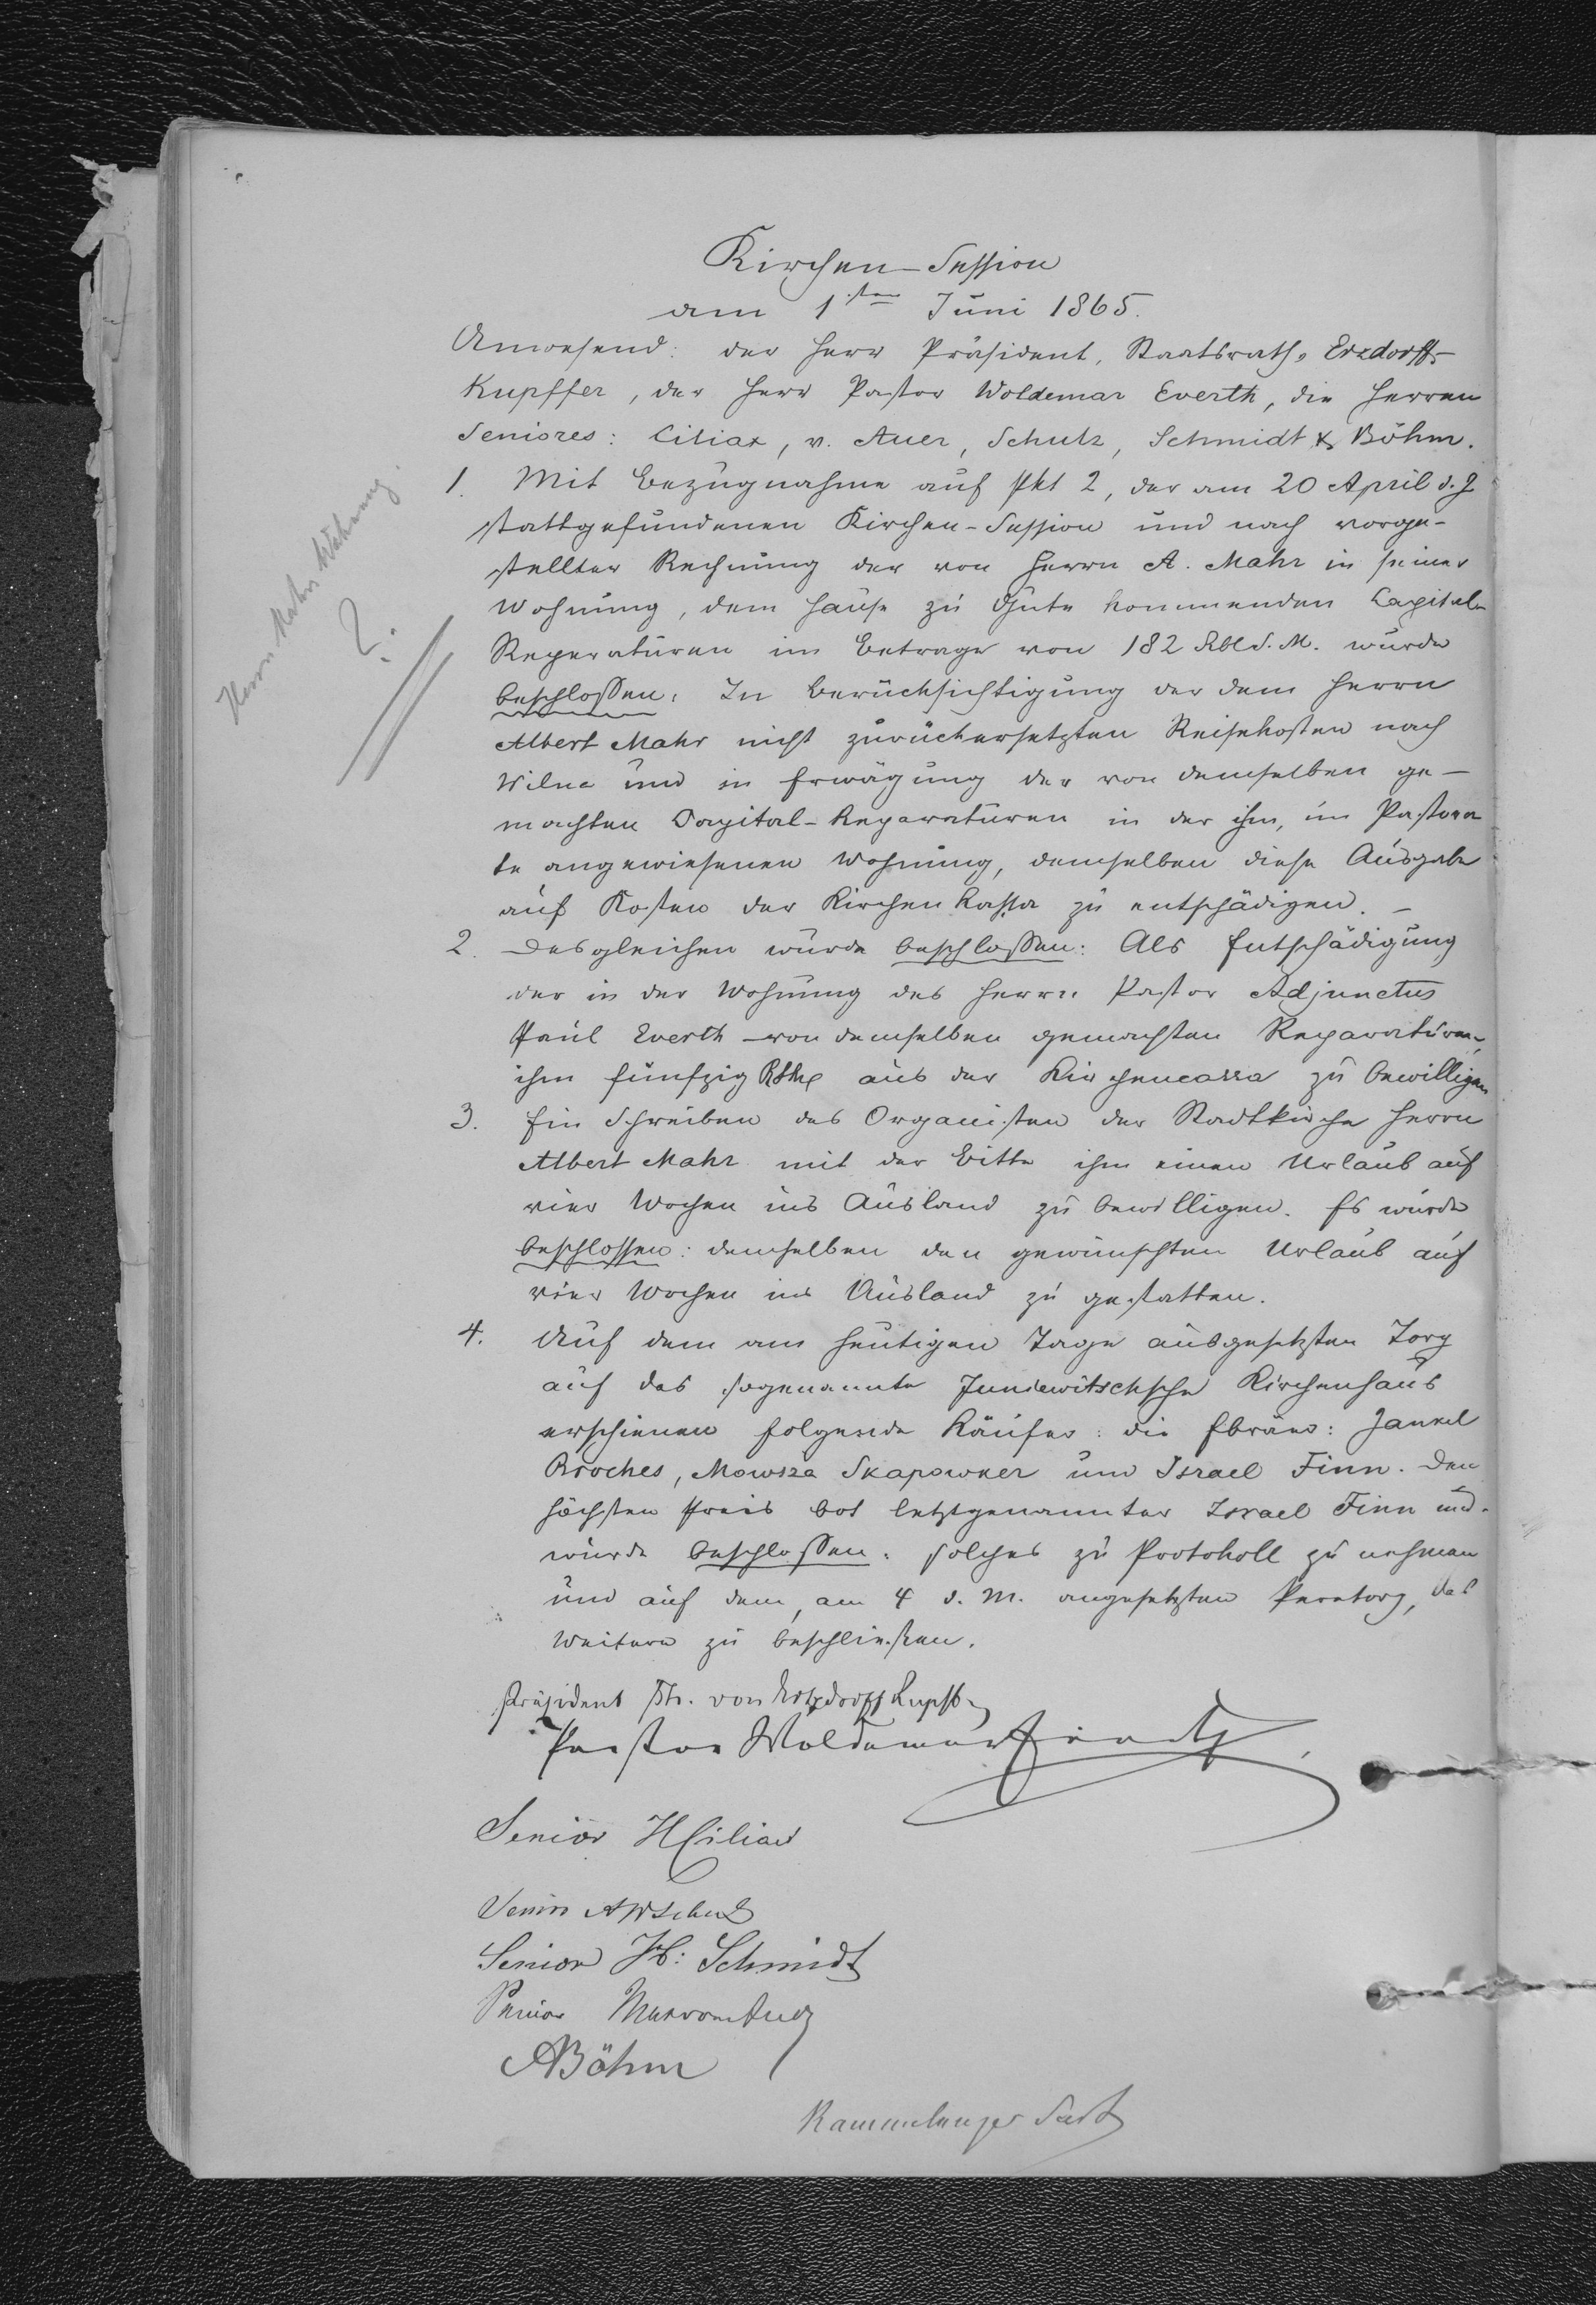 Kirchen-Session
am 1sten Juni 1865.
Anwesend: der Herr Präsident, Staatsrath v. Erzdorff-
Kupffer, der Herr Pastor Woldemar Everth, die Herren
Seniores: Ciliax, v. Auer, Schulz, Schmidt & Böhm.
1. Mit Bezugnahme auf Pkt 2, der am 20 April d. J.
stattgefundenen Kirchen-Session und nach vorge-
stellter Rechnung der von Herrn A. Mahr in seiner
Wohnung, dem Hause zu Gute kommenden Capital-
Reperaturen im Betrage von 182 Rbl S. M. wurde
beschloßen: In Berücksichtigung der dem Herrn
Albert Mahr nicht zurückersetzten Reisekosten nach
Wilna und in Erwägung der von demselben ge-
machten Capital-Reparaturen in der ihm, im Pastora
te angewiesenen Wohnung, demselben diese Ausgabe
auf Kosten der Kirchen Kassa zu entschädigen. –
2. Desgleichen wurde beschloßen: Als Entschädigung
der in der Wohnung des Herrn Pastor Adjunctus
Paul Everth von demselben gemachten Reparaturen,
ihm fünfzig Rbl aus der Kirchencassa zu bewilligen
3. Ein Schreiben des Organisten der Stadtkirche Herrn
Albert Mahr mit der Bitte ihm einen Urlaub auf
vier Wochen ins Ausland zu bewilligen. Es wurde
beschlossen: demselben den gewünschten Urlaub auf
vier Wochen ins Ausland zu gestatten.
4. Auf dem am heutigen Tage ausgesetzten Torg
auf das sogenannte Juniewitschsche Kirchenhaus
erschienen folgende Käufer: die Ebräer: Jankel
Broches, Mowsza Skapowker und Israel Finn. Den
höchsten Preis bot letztgenannter Israel Finn und
wurde beschloßen: solches zu Protokoll zu nehmen
und auf dem, am 4 d. M. angesetzten Peretorg, das
Weitere zu beschließen.
Präsident Th. von Erzdorff Kupffer
Pastor Woldemar Everth
Senior H Ciliax
Senior A W Schulz
Senior H: Schmidt
Senior von Auer
A Böhm
Herrn Mahrs Wohnung
?